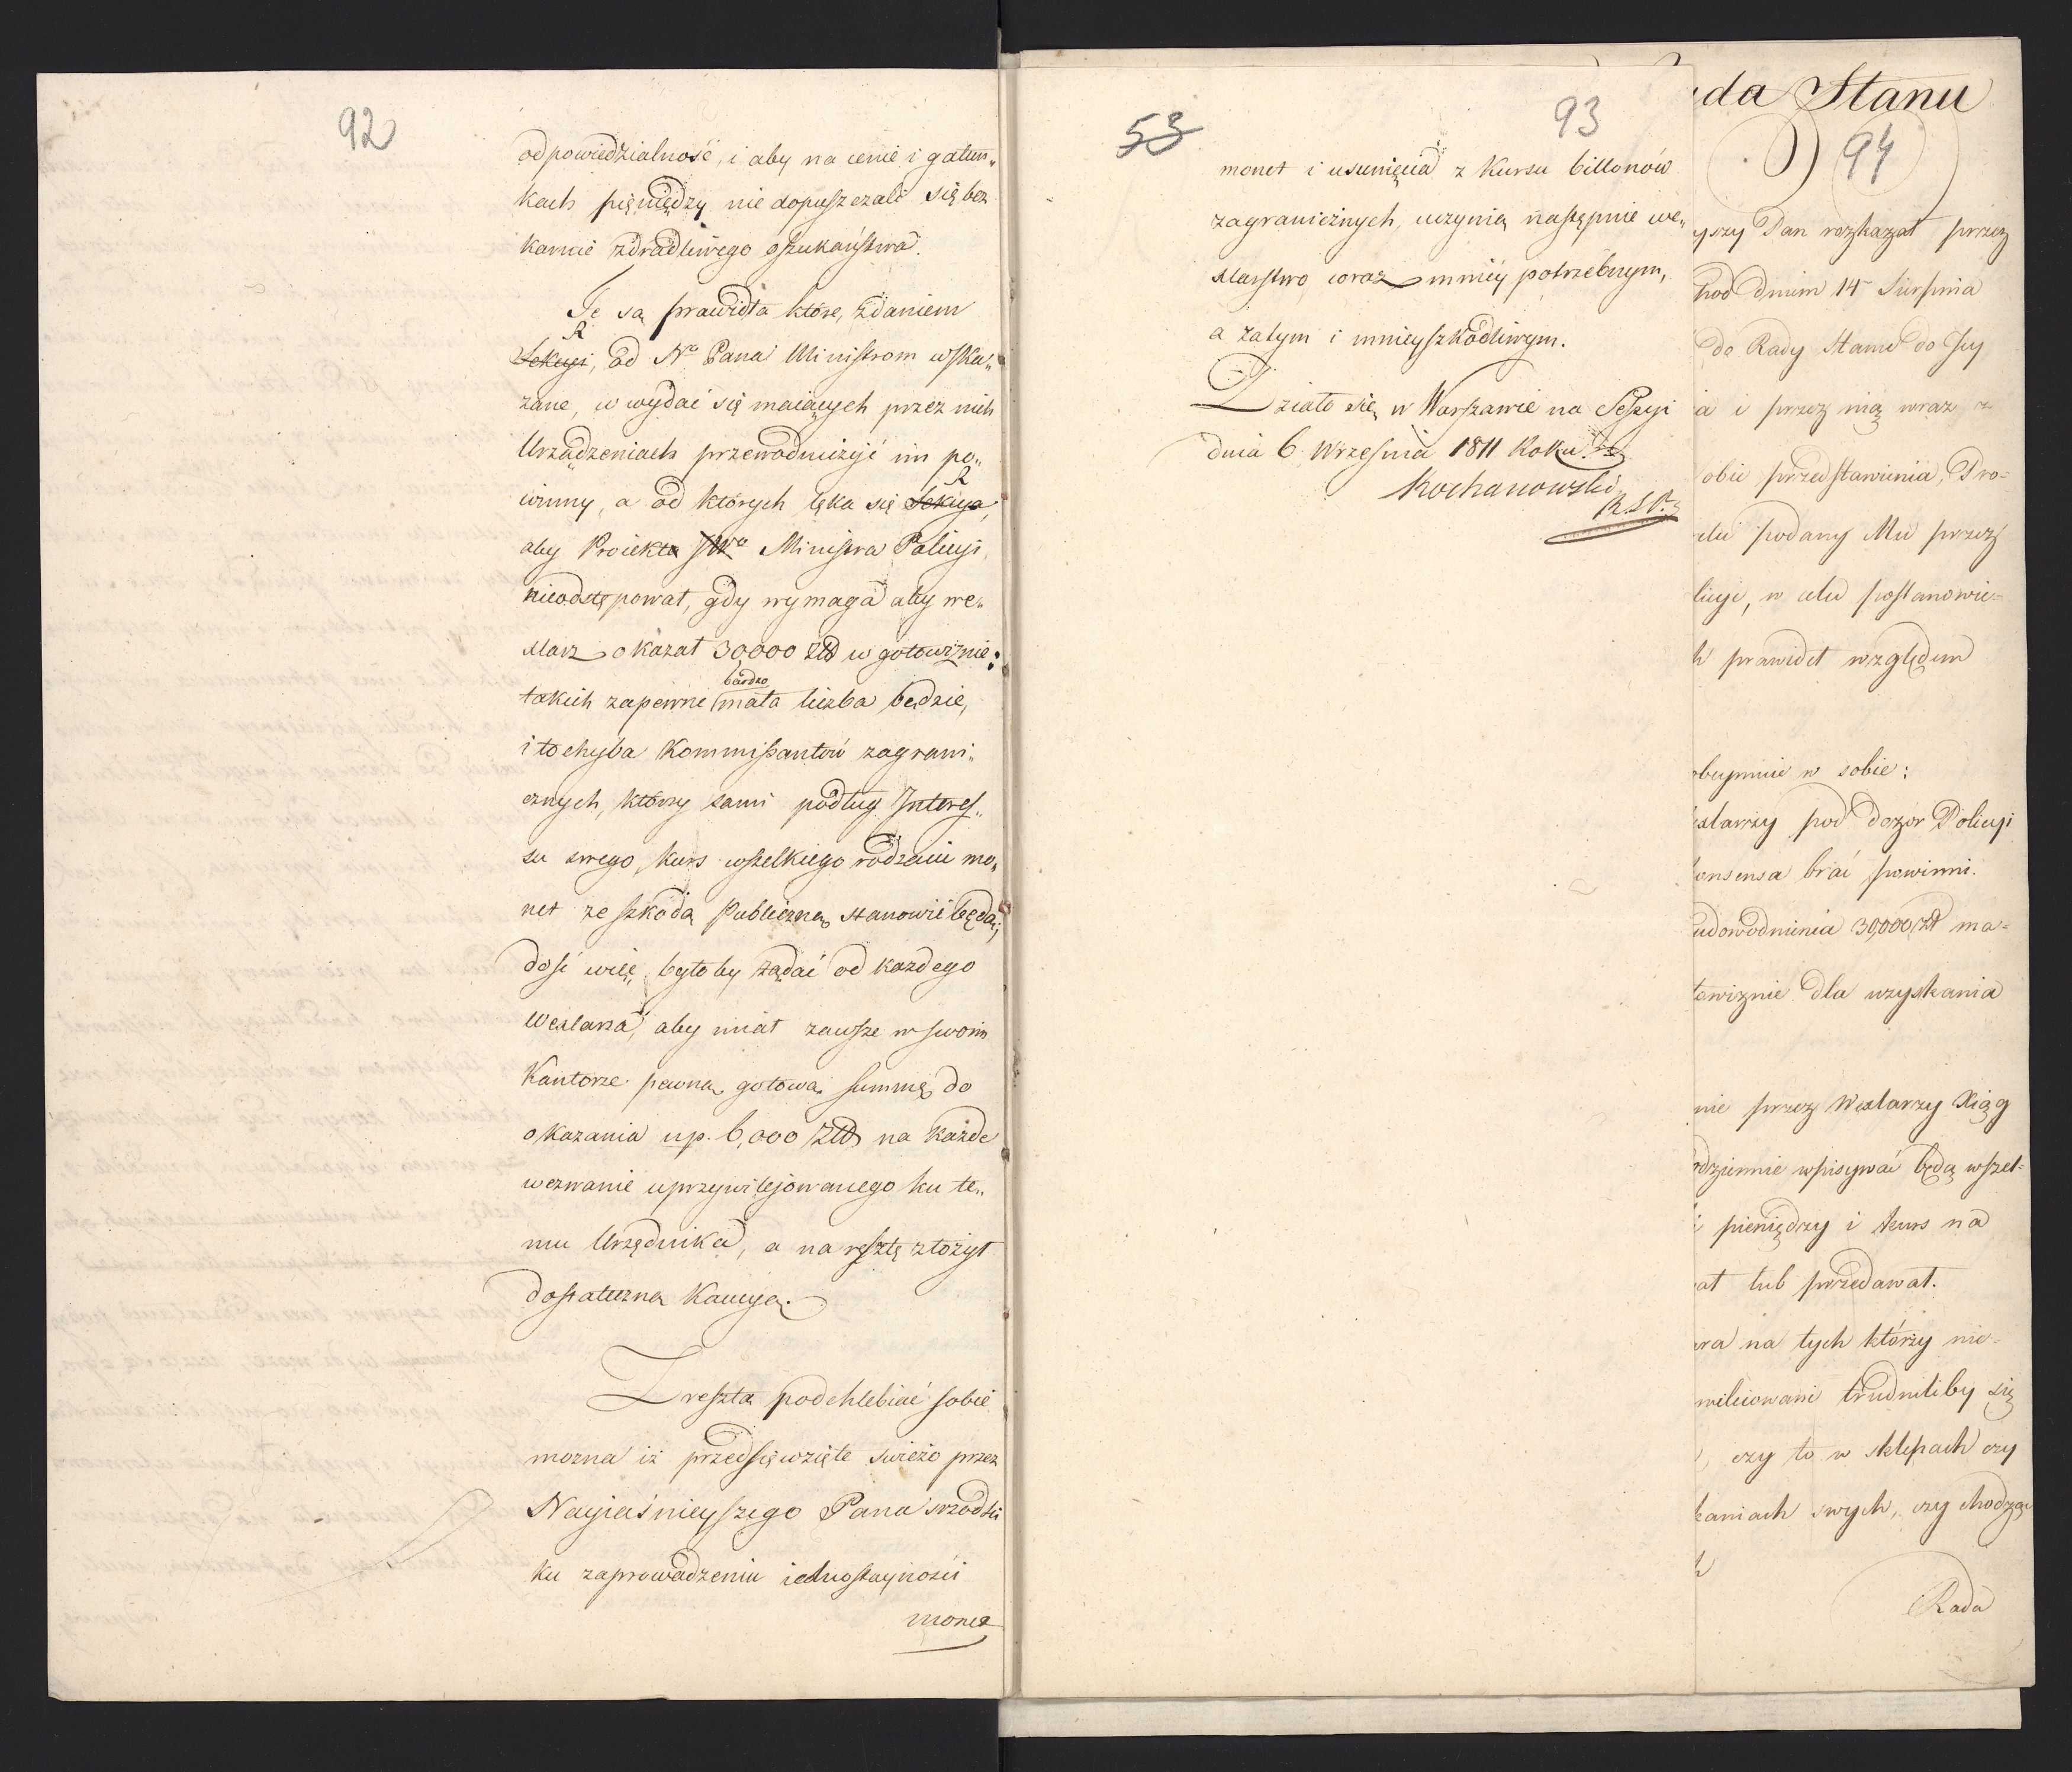 92
odpowiedzialność, i aby na cenie i gatun„
kach pięniędzy nie dopuszczali się bez
karnie zdradliwego oszukaństwa.
Te są prawidła które, zdaniem
R
Sekcyi, od No Pana Ministrom wska„
zane, w wydać się maiących przez nich
Urządzeniach przewodniczyć im po„
R
winny, a od których lęka się Sekcya,
aby Proiekta JWo Ministra Policyi,
nieodstępował, gdy wymaga aby we„
xlarz okazał 30,000 Złt w gotowiznie:
bardzo
takich zapewne mała liczba będzie,
i to chyba Kommissantów zagrani„
cznych, którzy sami podług Interes„
su swego, kurs wszelkiego rodzaiu mo„
net ze szkodą publiczną stanowić będą;
dość więc byłoby żądać od każdego
Wexlarza, aby miał zawsze w swoim
Kantorze pewną gotową summę do
okazania np. 6,000 Złt na każde
wezwanie uprzywilejowanego ku te„
mu Urzędnika, a na resztę złożył
dostateczną Kaucyą.
Zresztą podchlebiać sobie
mozna iż przedsięwzięte świeżo przez
Nayiaśnieyszego Pana srzodki
ku zaprowadzeniu iednostayności
monet
53
93
monet i usunięcia z kursu billonów
zagranicznych, uczynią następnie we„
xlarstwo coraz mniey potrzebnym,
a zatym i mniey szkodliwym.
Działo się w Warszawie na Sessyi
dnia 6 Września 1811 Roku.
Kochanowski
R.S.P.
da Stanu
94
yszy Pan rozkazał przez
pod dniem 14 Sierpnia
do Rady Stanu do Jey
ia i przez nią wraz z
obie przedstawienia, Pro=
podany Mu przez
licyi, w celu postanowie=
h prawideł względem
obeymuie w sobie:
xlarzy pod dozor Policyi
onsensa brać powinni.
udowodnienia 30,000 zł ma=
towiznie dla uzyskania
nie przez Wexlarzy Xiąg
dziennie wpisywać będą wszel=
pieniędzy i kurs na
at lub przedawał.
ara na tych którzy nie=
wileiowani trudniliby się
, czy to w sklepach czy
kaniach swych, czy chodząc
h
Rada